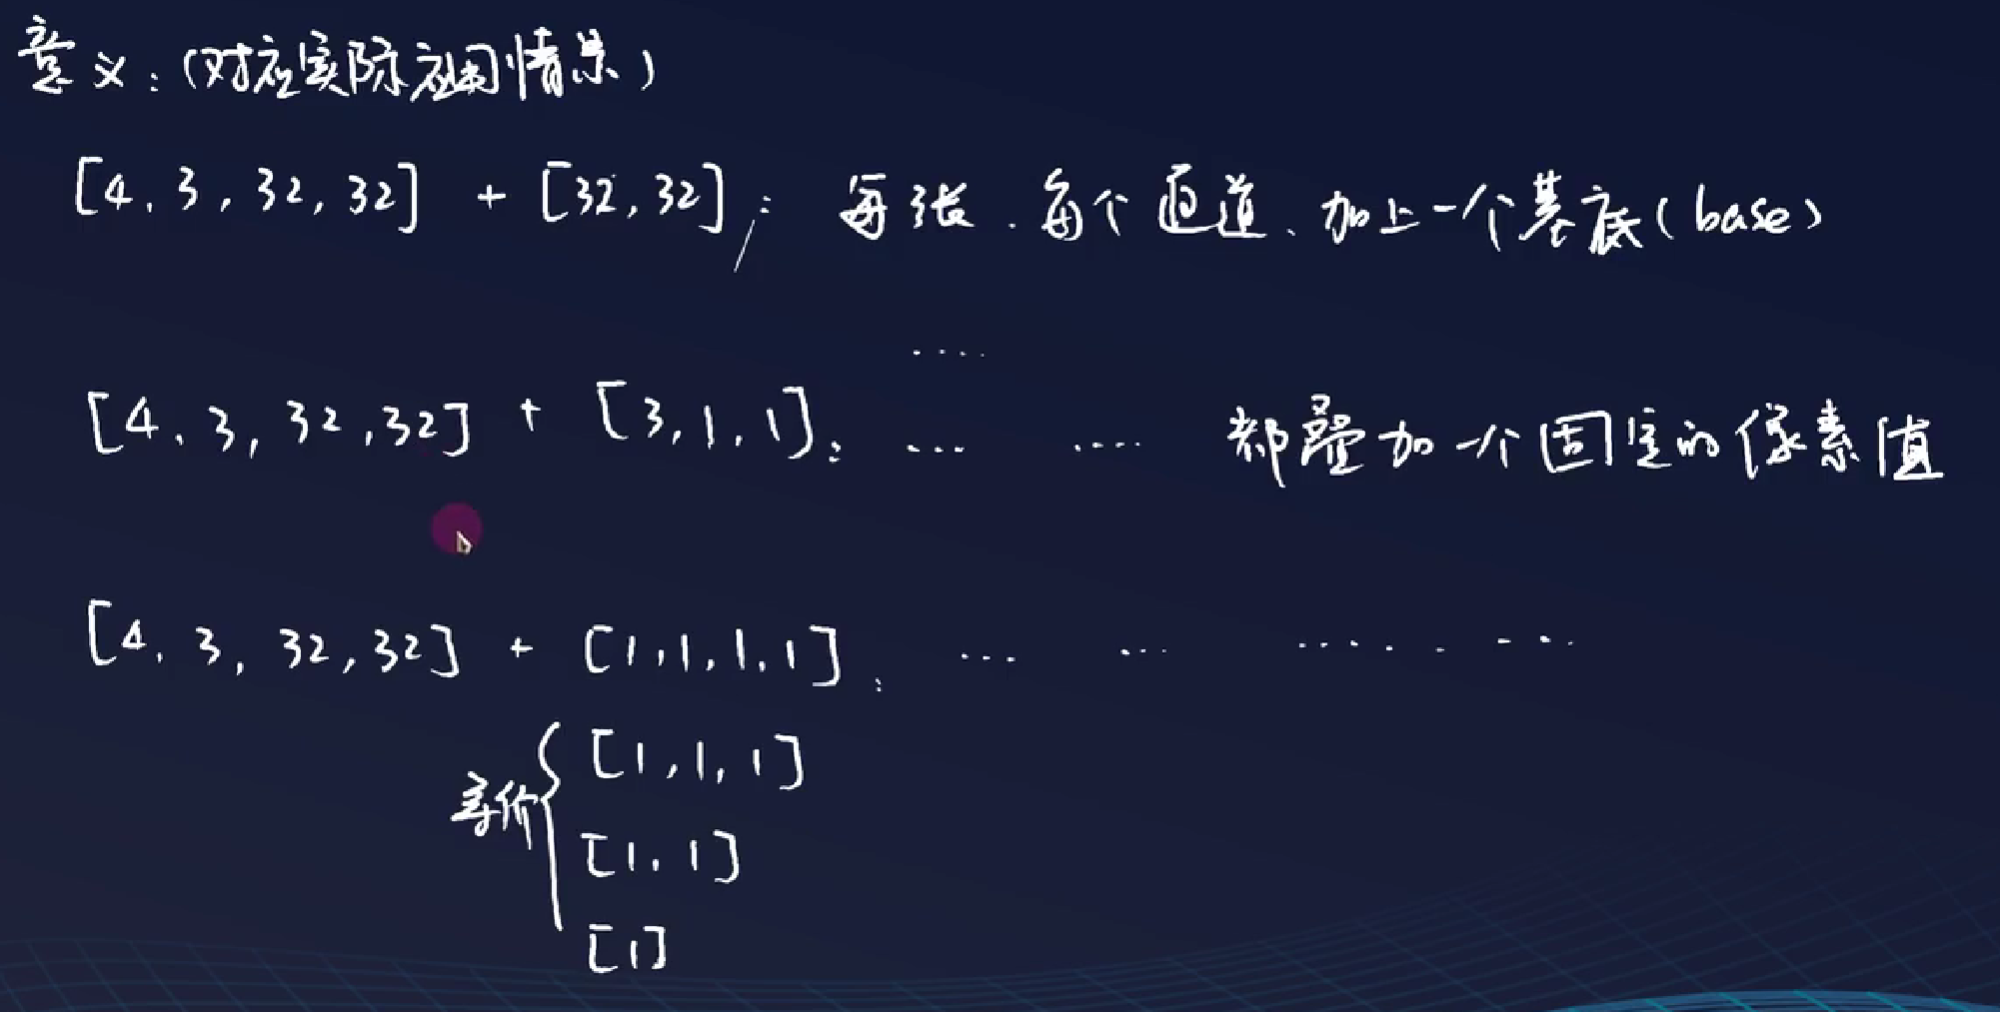 意义：(对应实际应用情景)
[4, 3, 32, 32] + [32, 32]; : 每张、每个通道、加上一个基底(base)
....
[4, 3, 32, 32] + [3, 1, 1]: ... .... 都叠加一个固定的像素值
[4, 3, 32, 32] + [1, 1, 1, 1]: ... ... .... . ....
等价 { [1, 1, 1]
[1, 1]
[1]